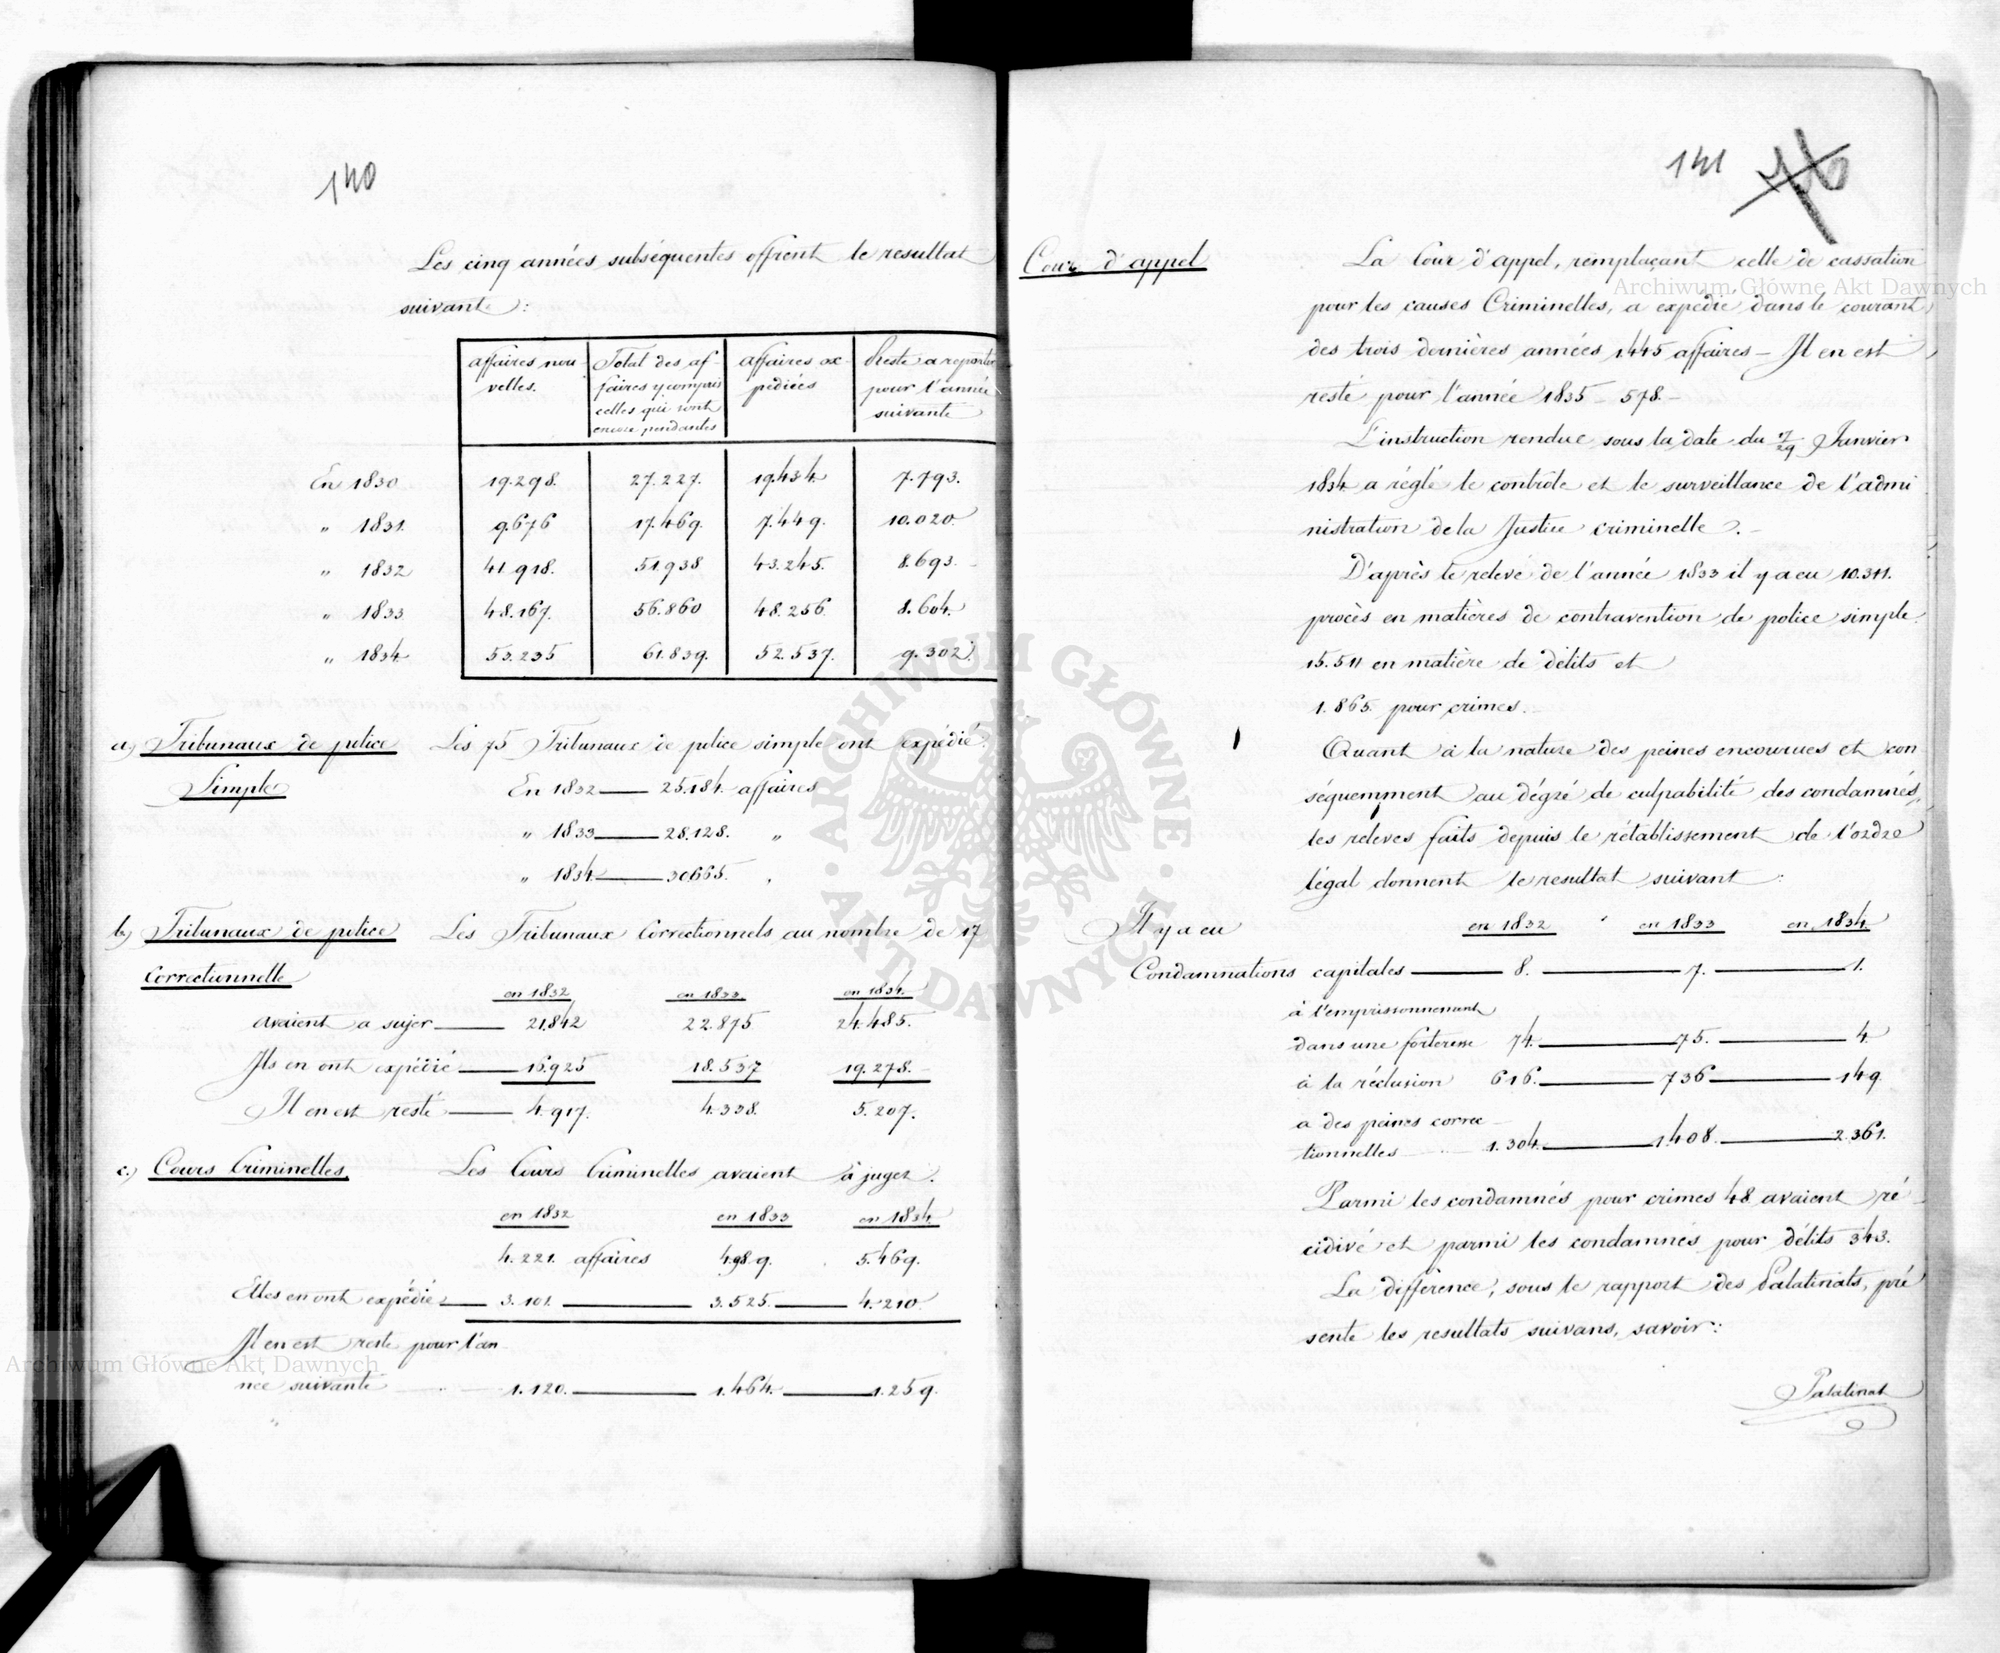 140
Les cinq années subséquentes offrent le resultat
suivante :
affaires nou
velles.
Total des af-
faires y compris
celles qui sont
encore pendantes
affaires ex-
pédiées
Reste a reporter
pour l'année
suivante
En 1830 19.298. 27.227. 19.434 7.793.
" 1831. 9.676 17.469. 7.449. 10.020.
" 1832 41.918. 51.938 43.245. 8.693.
" 1833 48.167. 56.860 48.256 8.604.
" 1834 53.235 61.839. 52.537. 9.302.
a) Tribunaux de police Les 75 Tribunaux de police simple ont expédié.
Simple
En 1832 — 25.184. affaires
" 1833 — 28.128. "
" 1834. — 30665. "
b) Tribunaux de police Les Tribunaux Correctionnels au nombre de 17
Correctionnelle
en 1832 en 1833. en 1834.
avaient a sujer — 21.842 22.875 24.485.
Ils en ont expédié — 16.925 18.537 19.278.
Il en est resté — 4.917. 4.338. 5.207.
c.) Cours Criminelles. Les Cours Criminelles avaient à juger.
en 1832 en 1833 en 1834
4.221. affaires 4.989. 5.469.
Elles en ont expédié — 3.101. — 3.525. — 4.210.
Il en est reste pour l'an
née suivante — 1.120. — 1.464. — 1.259.
141 76
Cour d'appel
La Cour d'appel, remplaçant celle de cassation
pour les causes Criminelles, a expedié dans le courant
des trois dernières années 1445 affaires – Il en est
resté pour l'année 1835 – 578. –
L'instruction rendue sous la date du 17/29 Janvier
1834 a réglé le contrôle et le surveillance de l'admi
nistration de la Justice criminelle. –
D'après le relevé de l'année 1833 il y a eu 10.311.
procès en matières de contravention de police simple.
15.511 en matière de délits et
1.865. pour crimes.
Quant à la nature des peines encourues et con
séquemment au dégré de culpabilité des condamnés,
les relevés faits depuis le rétablissement de l'ordre
légal donnent le resultat suivant :
Il y a eu en 1832 en 1833 en 1834.
Condamnations capitales — 8. — 7. — 1.
à l'emprisonnement
dans une forteresse 74. — 75. — 4
à la réclusion 616. — 736 — 149
a des peines correc
tionnelles 1.304. — 1.408. — 2.361.
Parmi les condamnés pour crimes 48 avaient ré
cidivé et parmi les condamnés pour délits 343.
La différence, sous le rapport des Palatinats, pré
sente les resultats suivans, savoir :
Palatinat
Archiwum Główne Akt Dawnych
Archiwum Główne Akt Dawnych
ARCHIWUM GŁÓWNE AKT DAWNYCH